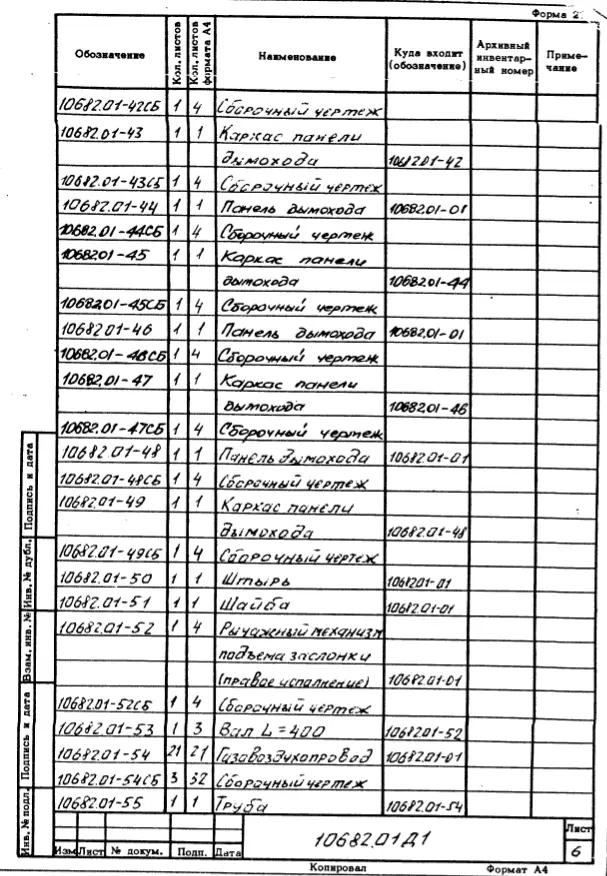 Форма 2
Обозначение Кол. листов Кол. листов формата А4 Наименование Куда входит (обозначение) Архивный инвентарный номер Примечание
10682.01-42СБ 1 4 Сборочный чертеж
10682.01-43 1 1 Каркас панели
дымохода 10682.01-42
10682.01-43СБ 1 4 Сборочный чертеж
10682.01-44 1 1 Панель дымохода 10682.01-01
10682.01-44СБ 1 4 Сборочный чертеж
10682.01-45 1 1 Каркас панели
дымохода 10682.01-44
10682.01-45СБ 1 4 Сборочный чертеж
10682.01-46 1 1 Панель дымохода 10682.01-01
10682.01-46СБ 1 4 Сборочный чертеж
10682.01-47 1 1 Каркас панели
дымохода 10682.01-46
10682.01-47СБ 1 4 Сборочный чертеж
10682.01-48 1 1 Панель дымохода 10682.01-01
10682.01-48СБ 1 4 Сборочный чертеж
10682.01-49 1 1 Каркас панели
дымохода 10682.01-48
10682.01-49СБ 1 4 Сборочный чертеж
10682.01-50 1 1 Штырь 10682.01-01
10682.01-51 1 1 Шайба 10682.01-01
10682.01-52 1 4 Рычажный механизм
подъема заслонки
(правое исполнение) 10682.01-01
10682.01-52СБ 1 4 Сборочный чертеж
10682.01-53 1 3 Вал L=400 10682.01-52
10682.01-54 21 21 Газовоздухопровод 10682.01-01
10682.01-54СБ 3 32 Сборочный чертеж
10682.01-55 1 1 Труба 10682.01-54
Инв. № подл. Подпись и дата Взам. инв. № Инв. № дубл. Подпись и дата
10682.01Д1
Лист
6
Изм Лист № докум. Подп. Дата
Копировал Формат А4